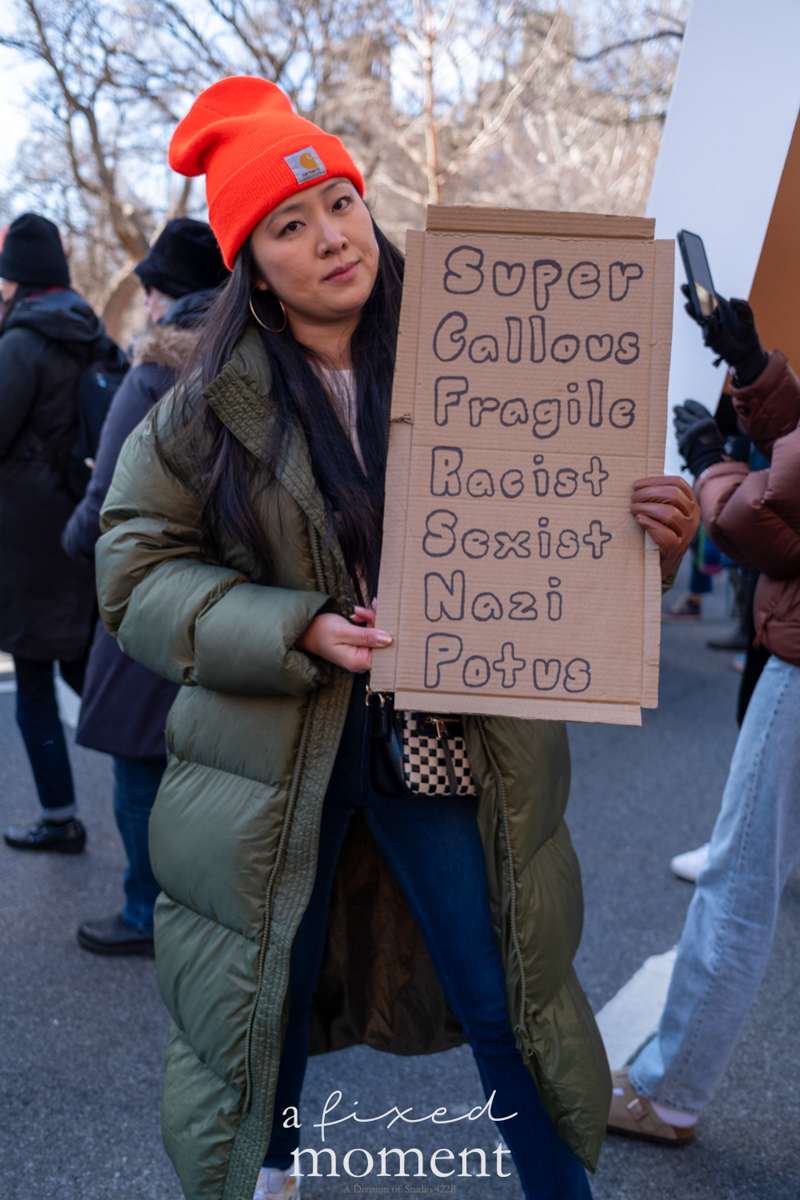 Super
Callous
Fragile
Racist
Sexist
Nazi
Potus
a fixed
moment
A Division of Studio 422B